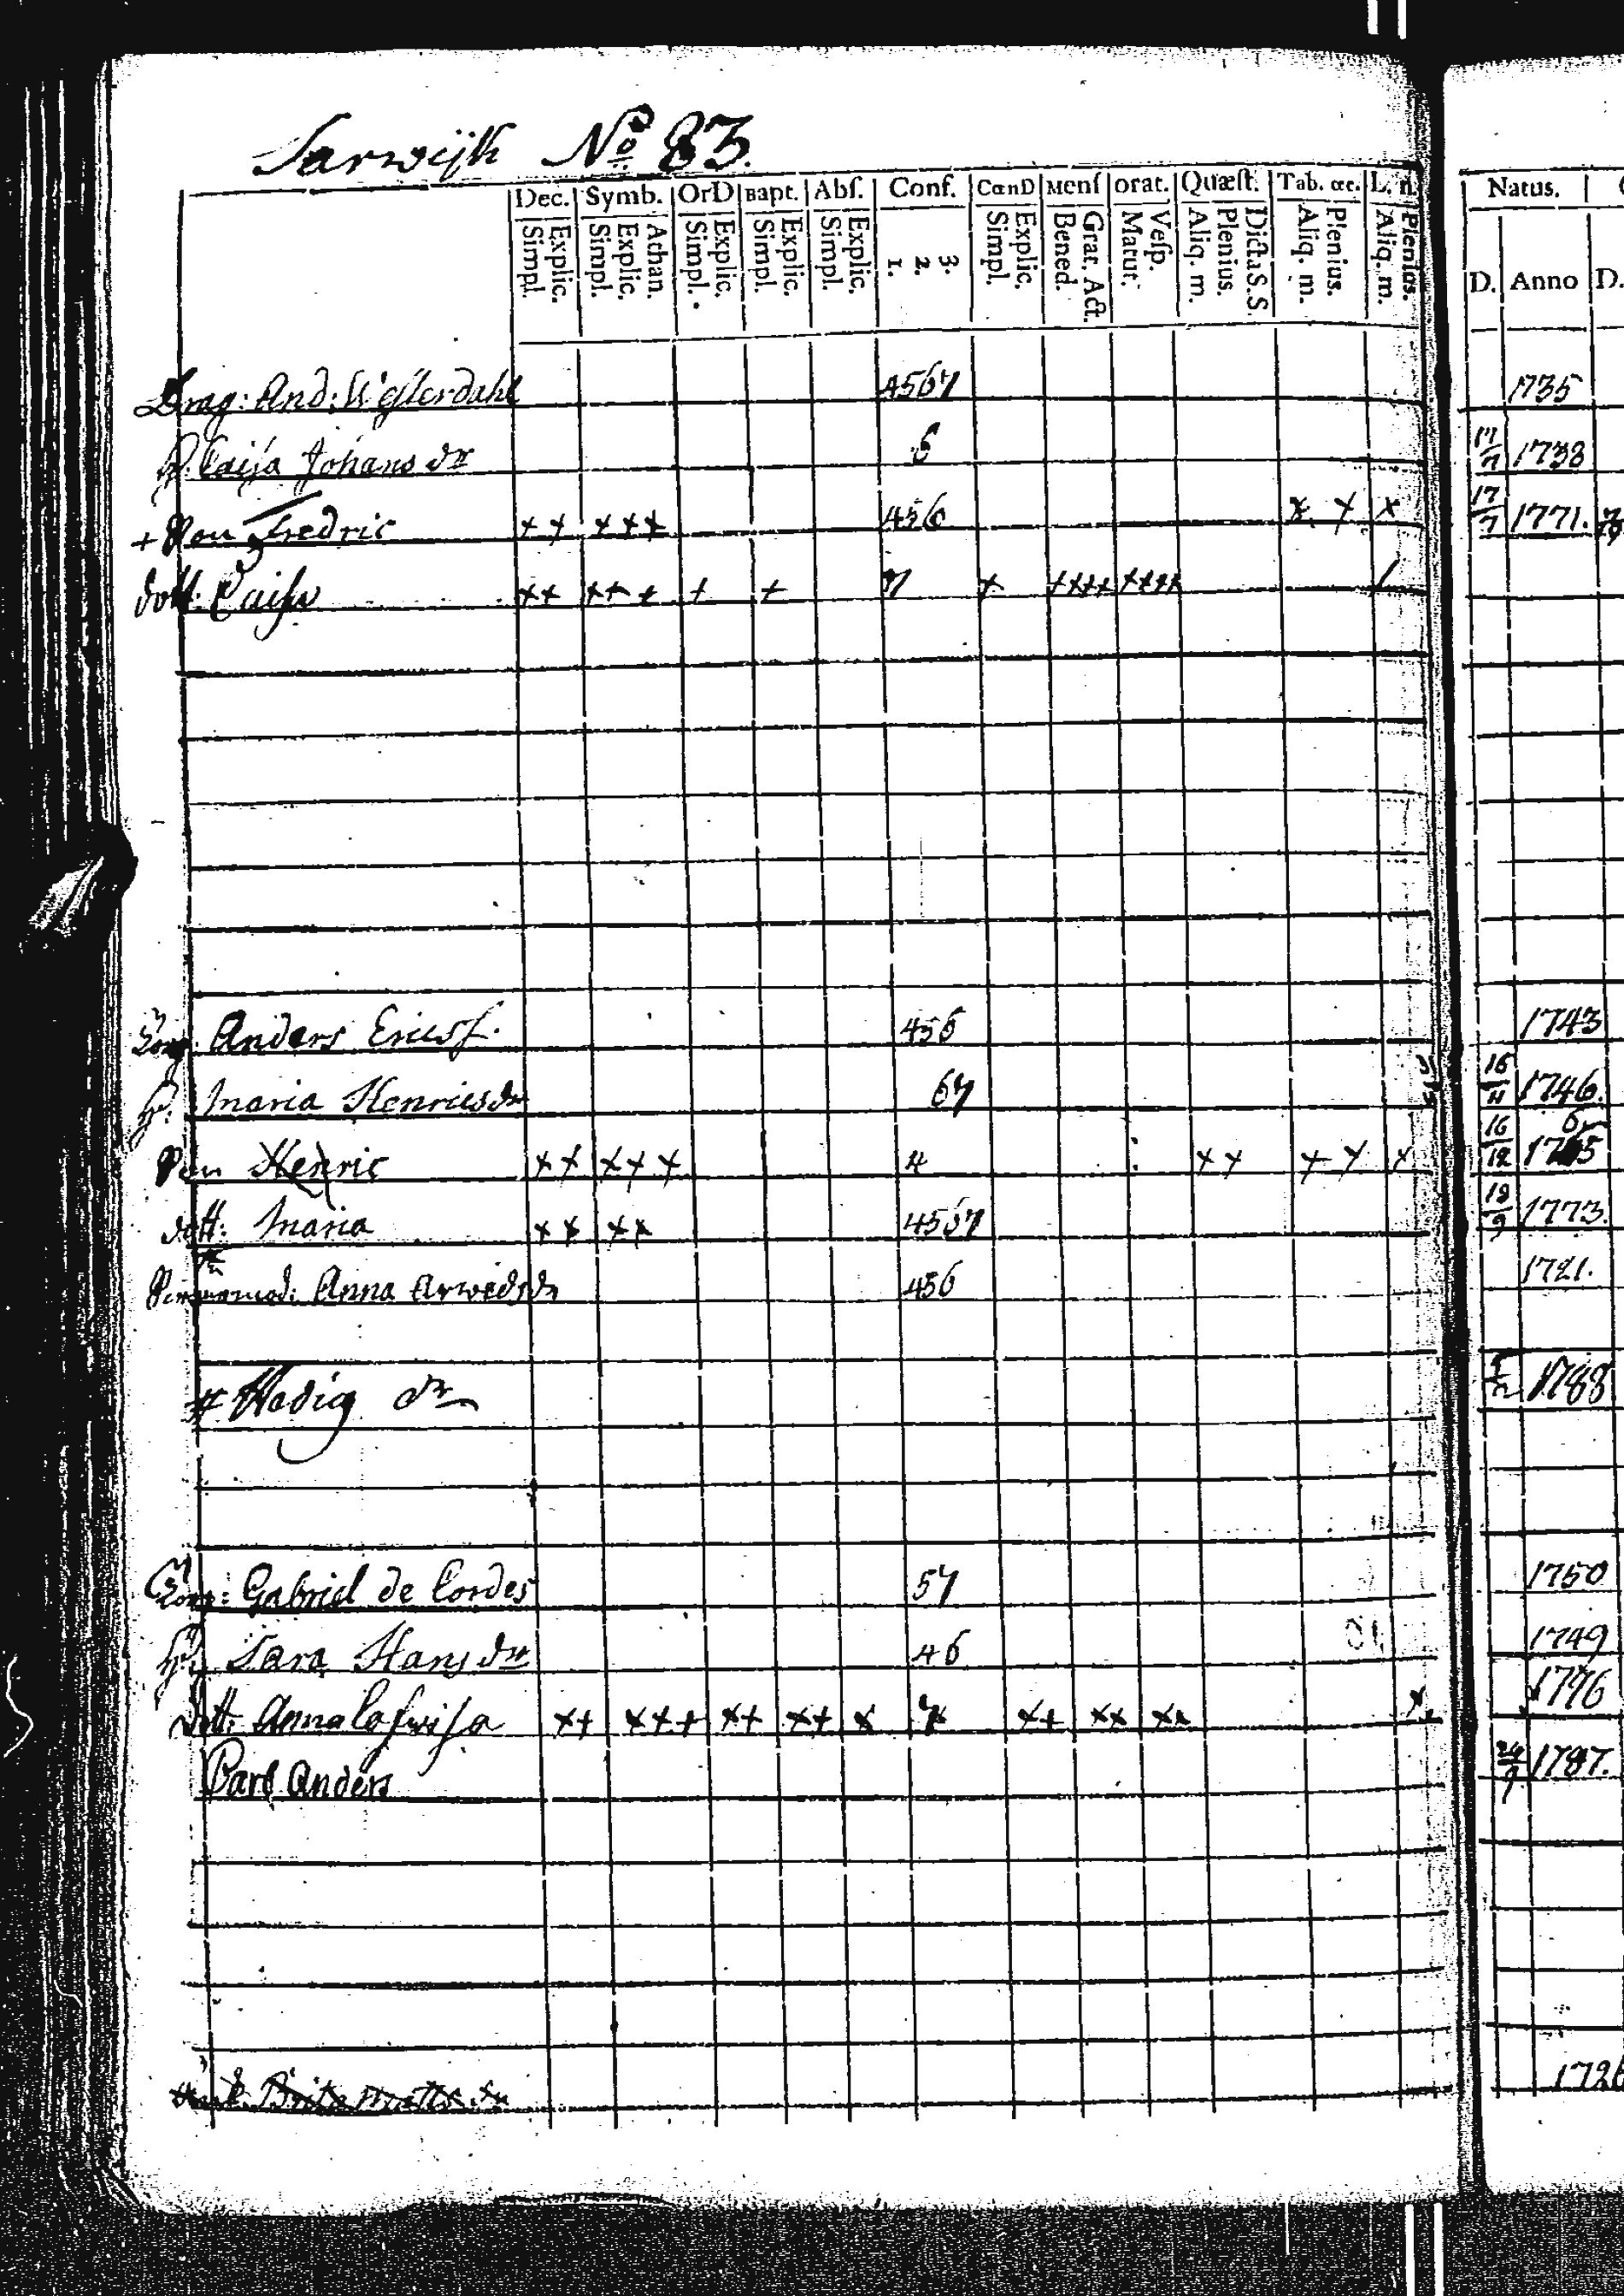 Sarwijk No 83.
Dec. Symb. OrD Bapt. Abſ. Conf. CœnD Menſ orat. Quæſt. Tab. œc. L. n. Natus.
Explic. Simpl. Athan. Explic. Simpl. Explic. Simpl. Explic. Simpl. Explic. Simpl. 3. 2. 1. Explic. Simpl. Grat. Act. Bened. Veſp. Matut. Dicta S. S. Plenius. Aliq. m. Plenius. Aliq. m. Plenius. Aliq. m. D. Anno D.
Drag: And: Westerdahl 4567 1735
h. Caisa Johans dr 6 17/7 1738
+ Son Fredric ++ +++ 456 x + x 17/7 1771.
dott: Caisa ++ +++ + + 7 + ++++ ++++ /
Anders Ericsf. 456 1743
h. Maria Henricsdr 67 16/11 1746.
Son Henric ++ +++ 4 ++ ++ x 16/12 1765
dott: Maria ++ ++ 4567 19/9 1773.
Anna Arwedsdr 456 1721.
# Hedig dr 1788
Gabriel de Cordes 57 1750
h. Sara Hansdr 46 1749
dott: Anna Lovisa ++ +++ ++ ++ x 7 ++ ++ ++ x 1776
Carl Anders 24/9 1787.
Brita Matts dr 1726